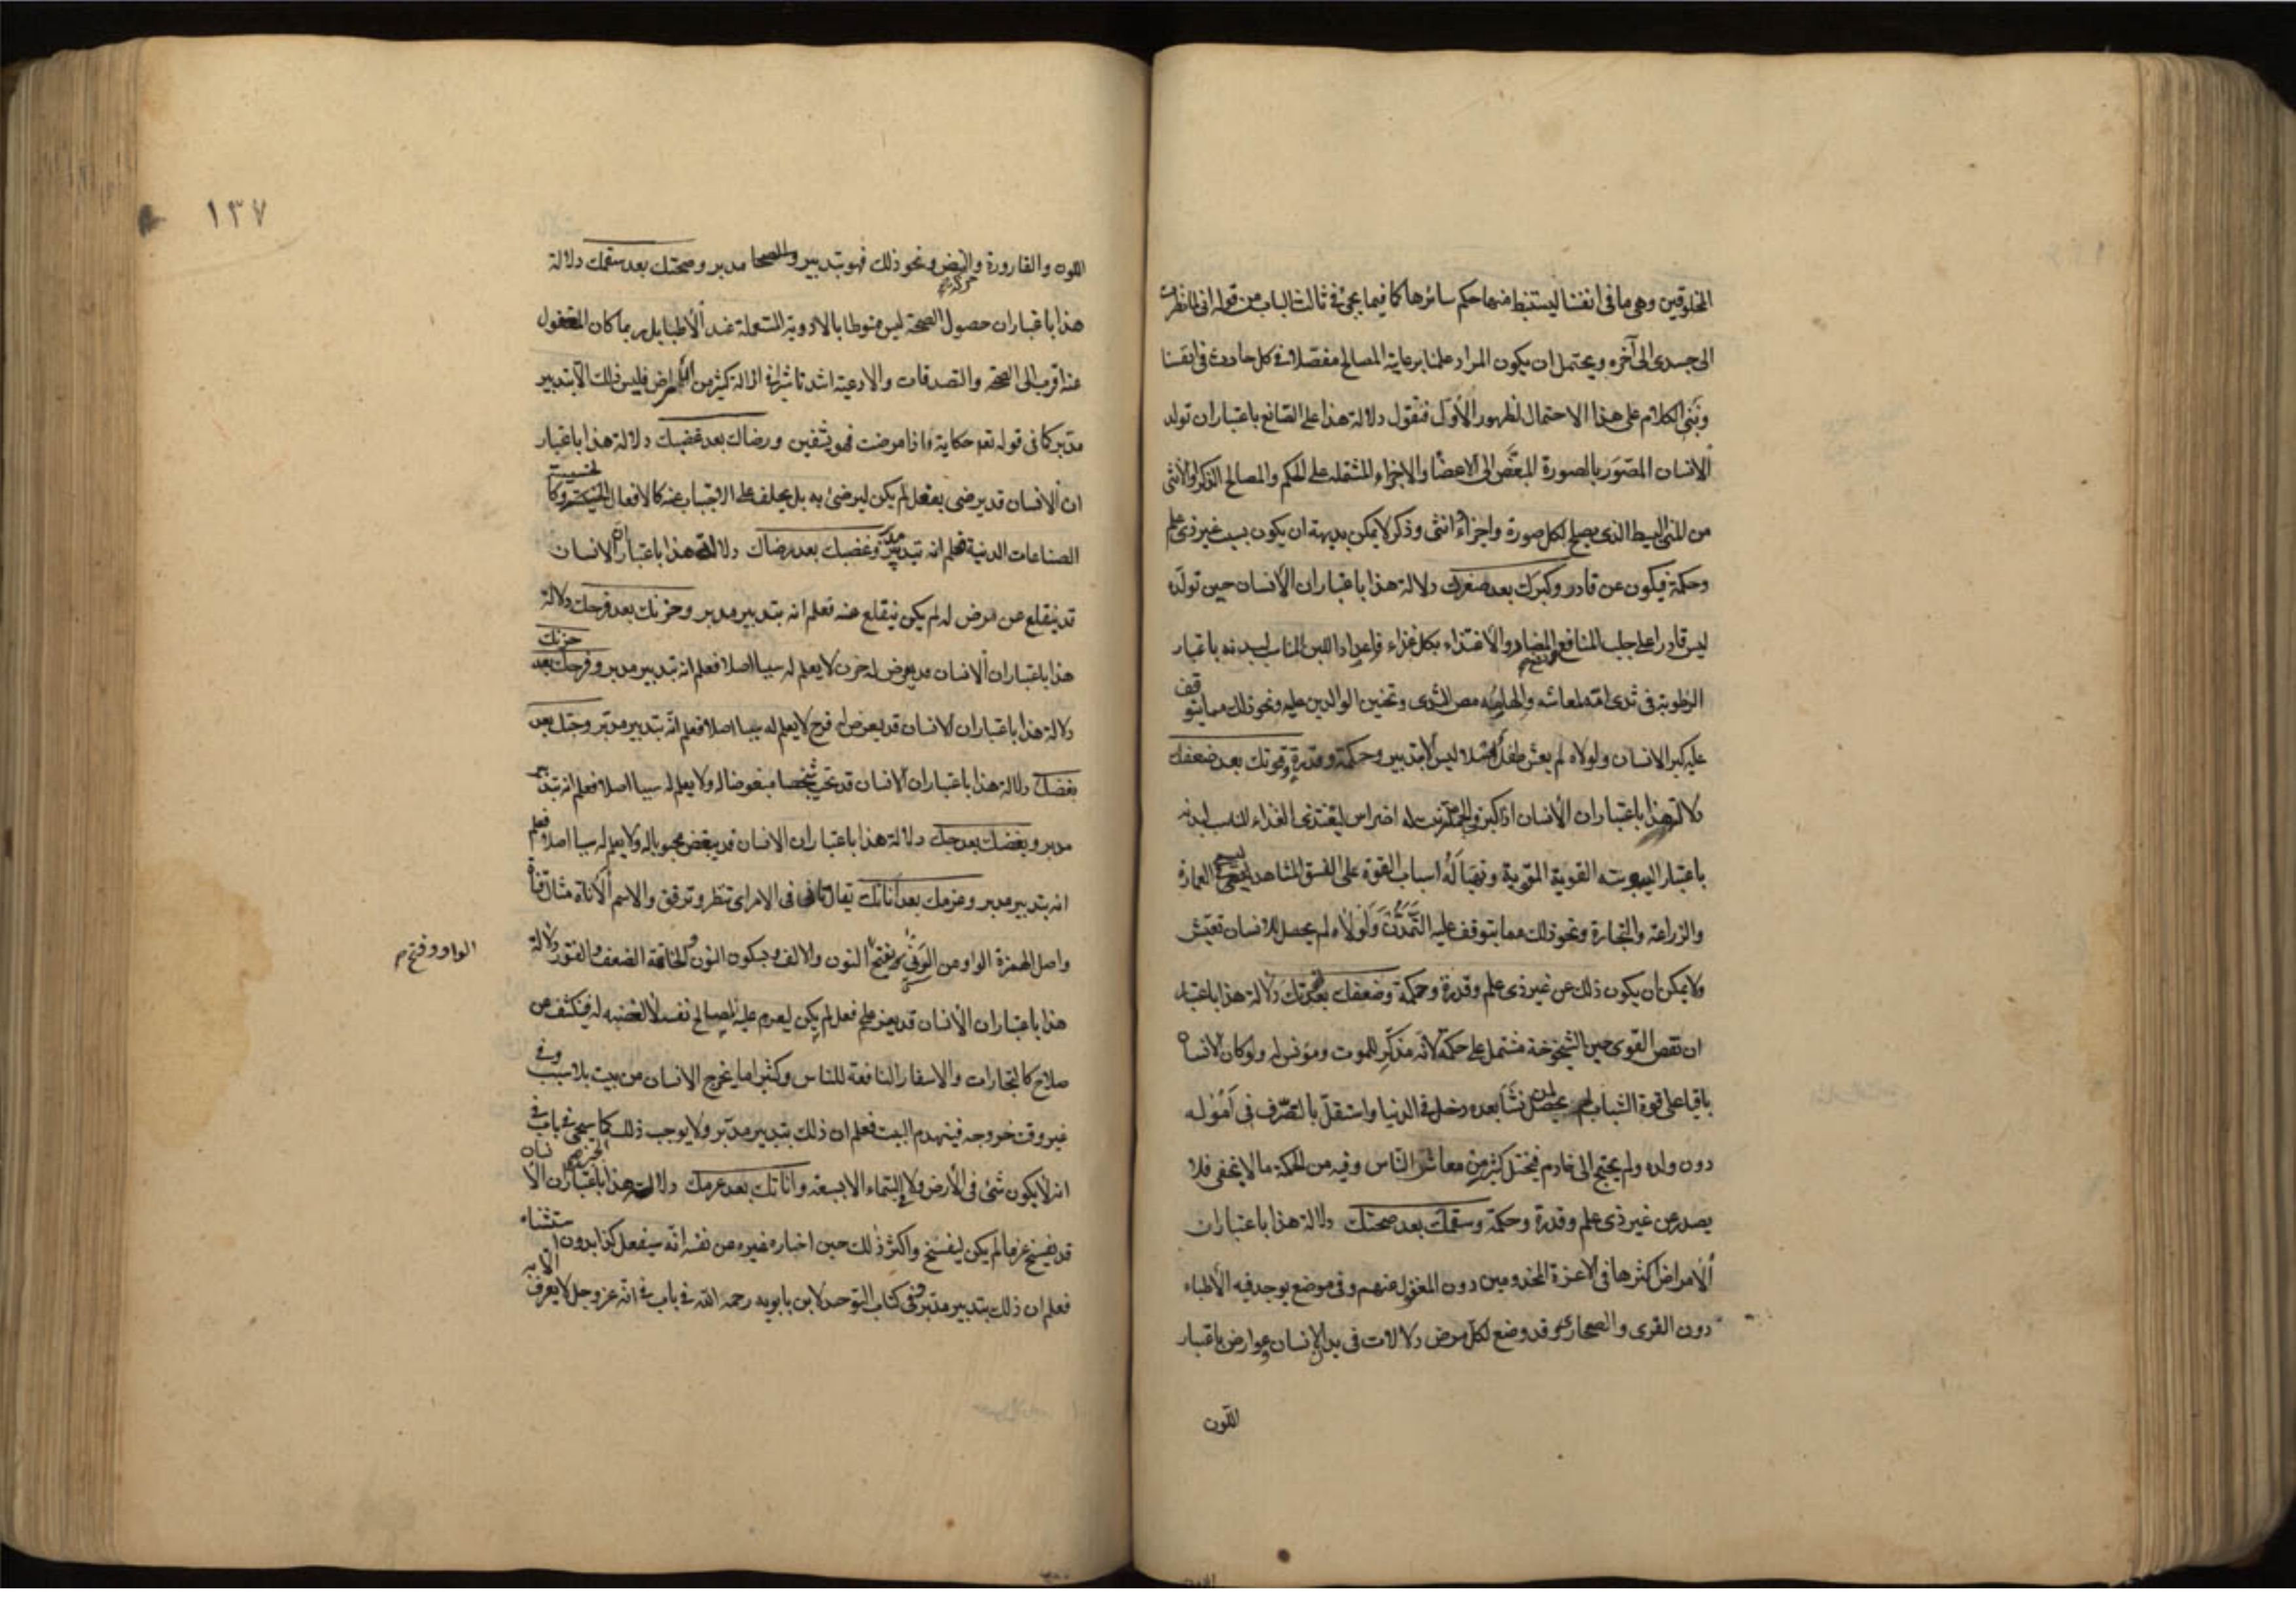 المخلوقين وهى ما فى انفسنا ليستنبط منها حكم سائرها كما فيما يجئ فى ثالث الباب من قوله انى لما نظرت
الى جسدى الى آخره ويحتمل ان يكون المراد علمنا برعاية المصالح مفصلا فى كل حادث فى انفسنا
ونبنى الكلام على هذا الاحتمال لظهور الأول فنقول دلالة هذا على الصانع باعتبار ان تولد
الانسان المصور بالصورة المبعض الى الاعضا والاجزاء المشتملة على الحكم والمصالح الذكر والأنثى
من المنى البسيط الذى يصلح لكل صورة واجزاء انثى وذكر لا يمكن بديهة ان يكون بسبب غير ذى علم
وحكمة فيكون عن قادر وكبرك بعد صغرك دلالة هذا باعتبار ان الانسان حين تولده
ليس قادرا على جلب المنافع المضار والاغتذاء بكل غذاء فاعداد اللبن المناسب لبدنه باعتبار
الرطوبة فى ثدى امه لمعاشه والهامه مص الثدى وتحنين الوالدين عليه ونحو ذلك مما يتوقف
عليه كبر الانسان ولولاه لم يعش طفل اصلا ليس الا بتدبير وحكمة وقدرة وقوتك بعد ضعفك
دلالة هذا باعتبار ان الانسان اذا كبر فى الجملة نبت له اضراس ليغتذى الغذاء المناسب لبدنه
باعتبار اليبوسته القوية المقوية وتهيأ له اسباب القوة على النسق المشاهد العمارة
والزراعة والتجارة ونحو ذلك مما يتوقف عليه التمدن ولولاه لم يحصل للانسان تعيش
ولا يمكن ان يكون ذلك عن غير ذى علم وقدرة وحكمة وضعفك بعد قوتك دلالة هذا باعتبار
ان نقص القوى حين الشيخوخة مشتمل على حكمة لانه مذكر للموت ومؤنس له ولو كان الانسان
باقيا على قوة الشباب لم يحصل لمن نشأ بعده دخل فى الدنيا واستقل بالتصرف فى اموله
دون ولده ولم يحتج الى خادم فيختل كثير من معاش الناس وفيه من الحكمة ما لا يخفى فلا
يصدر عن غير ذى علم وقدرة وحكمة وسقمك بعد صحتك دلالة هذا باعتبار ان
الامراض اكثرها فى الاعزة المخدومين دون المغفول عنهم وفى موضع يوجد فيه الأطباء
دون القرى والصحارى وقد وضع لكل مرض دلالات فى بدن الانسان وعوارض باعتبار
اللون
١٣٧
اللون والقارورة والنبض ونحو ذلك فهو بتدبير مدبر وصحتك بعد سقمك دلالة
هذا باعتبار ان حصول الصحة ليس منوطا بالادوية المستعملة عند الأطبا بل ربما كان المغفول
عنه اقرب الى الصحة والتصدقات والادعية اشد تاثيرا فى ازالة كثير من الامراض فليس ذلك الا بتدبير
مدبر كما فى قوله تعالى حكاية واذا مرضت فهو يشفين ورضاك بعد غضبك دلالة هذا باعتبار
ان الانسان قد يرضى بفعل لم يكن ليرضى به بل يحلف على الاجتناب عنه كالافعال الخسيسة وكا
الصناعات الدنية فعلم انه بتدبير مدبر وغضبك بعد رضاك دلالة هذا باعتبار ان الانسان
قد ينقلع عن غرض له لم يكن ينقلع عنه فعلم انه بتدبير مدبر وحزنك بعد فرحك دلالة
هذا باعتبار ان الانسان قد يعرض له حزن لا يعلم له سببا اصلا فعلم انه بتدبير مدبر وفرحك بعد حزنك
دلالة هذا باعتبار ان الانسان قد يعرض له فرح لا يعلم له سببا اصلا فعلم انه بتدبير مدبر وحبك بعد
بغضك دلالة هذا باعتبار ان الانسان قد يحب شخصا مبغوضا له ولا يعلم له سببا اصلا فعلم انه بتدبير
مدبر وبغضك بعد حبك دلالة هذا باعتبار ان الانسان قد يبغض محبوبا له ولا يعلم له سببا اصلا فعلم
انه بتدبير مدبر وعزمك بعد اناتك يقال تانى فى الامر اى تنظر وترفق والاسم الاناة مثل قناة
واصل الهمزة الواو من الونى بفتح النون والالف وبسكون النون والخاتمة الضعف والفتور دلالة
الواو وفتح م
هذا باعتبار ان الانسان قد يعزم على فعل لم يكن ليعزم عليه لمصالح نفسه فينكشف عن
صلاح كالتجارات والاسفار النافعة للناس وكثيرا ما يخرج الانسان من بيت بلا سبب وفى
غير وقت خروجه فينهدم البيت فعلم ان ذلك بتدبير مدبر ولا يوجب ذلك كما سيجئ فى باب فى
انه لا يكون شئ فى الأرض ولا فى السماء الا بسبعة واناتك بعد عزمك دلالة هذا باعتبار ان الانسان
قد يفسخ عزما لم يكن ليفسخ واكثر ذلك حين اخباره غيره من نفسه انه سيفعل كذا بدون استثناء
فعلم ان ذلك بتدبير مدبر وفى كتاب التوحيد لابن بابويه رحمه الله فى باب فى انه عز وجل لا يعرف الا به